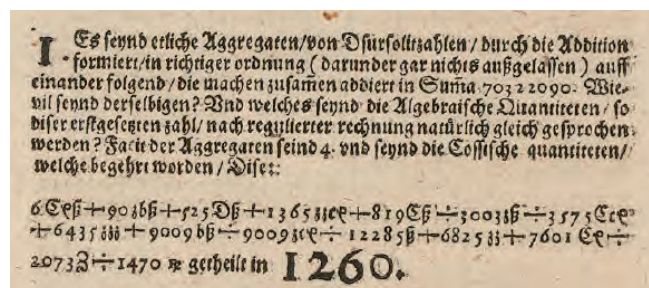 I Es seynd etliche Aggregaten/von Dsursolitzahlen / durch die Addition
formiert/in richtiger ordnung ( darunder gar nichts außgelassen ) auff
einander folgend / die machen zusam̃en addiert in Sum̃a 70322090. Wie-
vil seynd derselbigen? Vnd welches seynd die Algebraische Quantiteten / so
diser erstgesetzten zahl/ nach regulierter rechnung natürlich gleich gesprochen
werden? Facit der Aggregaten seind 4. vnd seynd die Cossische quantiteten/
welche begehrt worden / Dise::
6 Ceß + 90 ʒbß + 525 Dß + 1365 ʒʒce + 819 Cß ÷ 3003 ʒß ÷ 3575 Cce
+ 6435 ʒʒʒ + 9009 bß ÷ 9009 ʒce ÷ 12285 ß + 6825 ʒʒ + 7601 Ce ÷
2073 ʒ ÷ 1470 ꝛe getheilt in 1260.